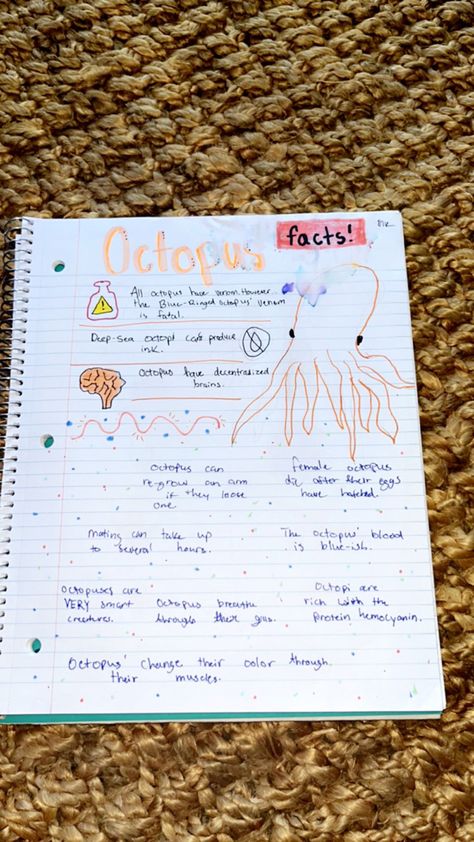 Octopus facts!
All octopus have venom. However,
the Blue-Ringed octopus' venom
is fatal.
Deep-Sea octopi can't produce
ink.
Octopus have decentralized
brains.
octopus can
re-grow an arm
if they loose
one
female octopus
die after their eggs
have hatched.
Mating can take up
to several hours.
The octopus' blood
is blue-ish.
Octopuses are
VERY smart
creatures.
Octopus breathe
through their gills.
Octopi are
rich with the
protein hemocyanin.
Octopus' change their color through
their muscles.